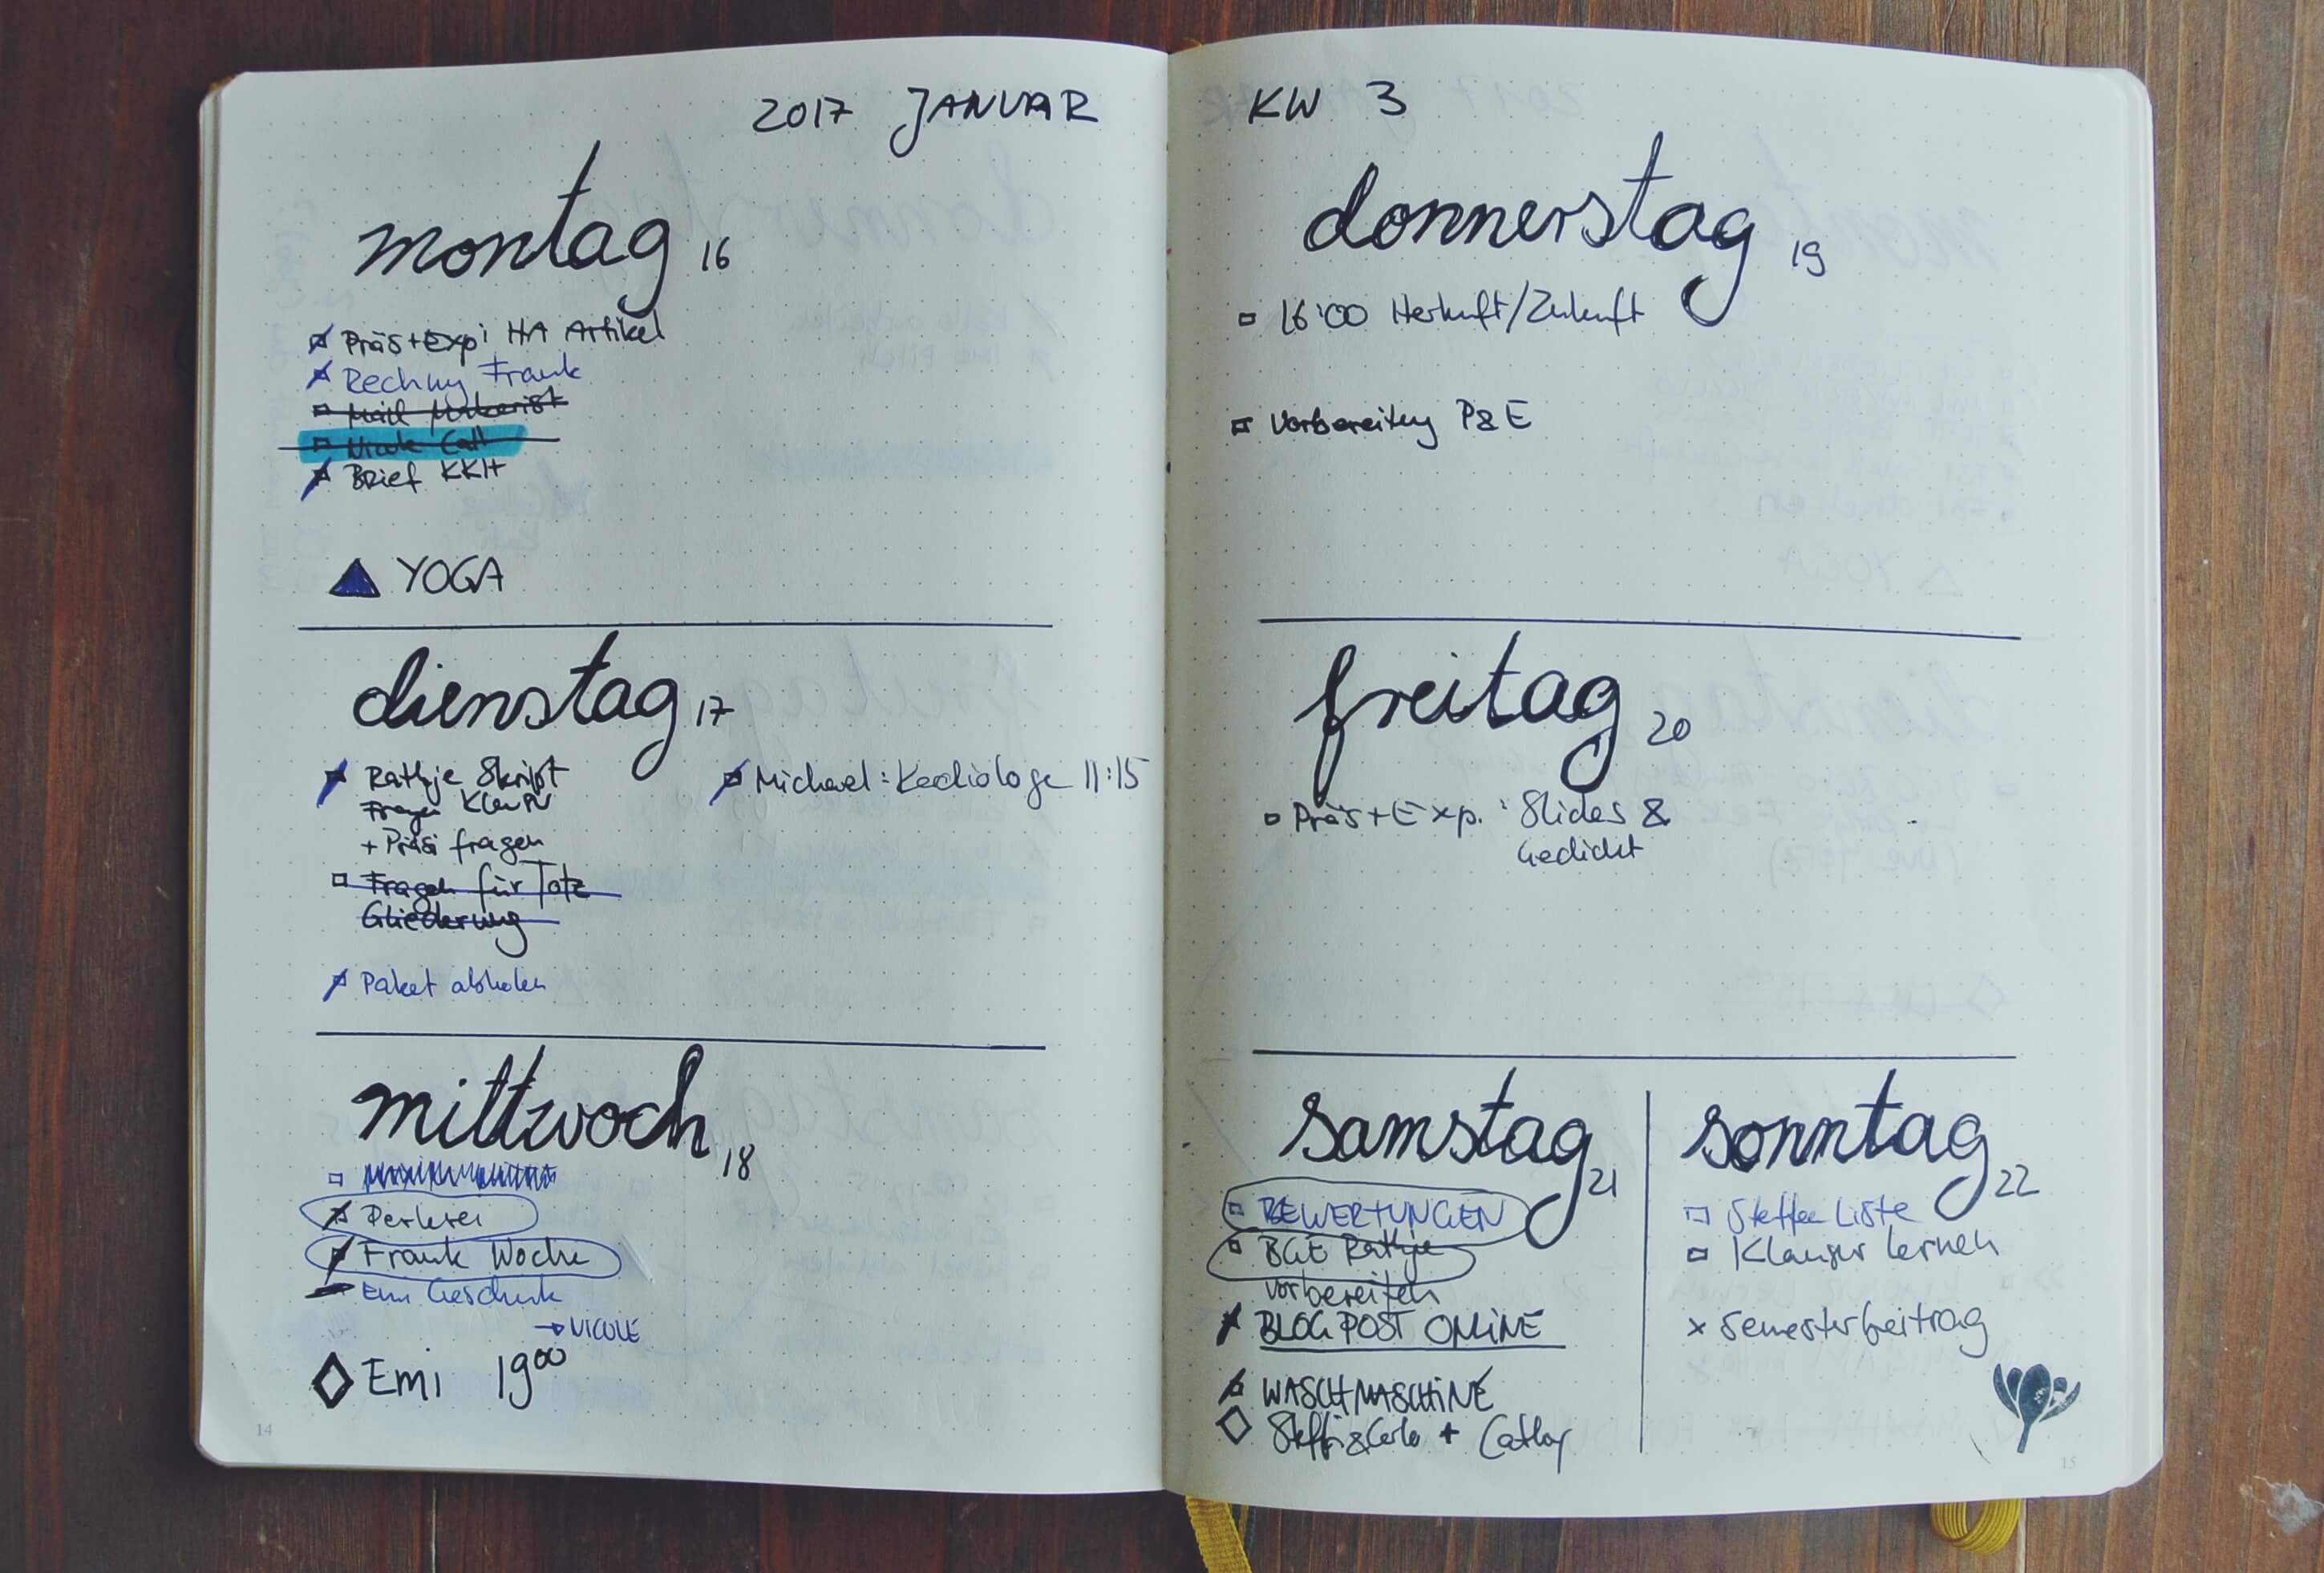 2017 JANUAR
montag 16
Präs+Exp: HA Artikel
Rechnung Frank
Mail Makerist
Nicole Call
Brief KKH
YOGA
dienstag 17
Rathje Skript
Fragen
+ Präsi fragen
Fragen für Totz
Gliederung
Paket abholen
Michael: Kardiologe 11:15
mittwoch 18
Perkrei
Frank Woche
Emi Geschenk
→ NICOLE
Emi 19 00
14
KW 3
donnerstag 19
16:00 Herkunft/Zukunft
Vorbereitung P&E
freitag 20
Präs+Exp.: Slides &
Gedicht
samstag 21
BEWERTUNGEN
BGE Rathje
vorbereiten
BLOGPOST ONLINE
WASCHMASCHINE
Steffi & Carlo + Cathy
sonntag 22
Steffen Liste
Klausur lernen
x Semesterbeitrag
15